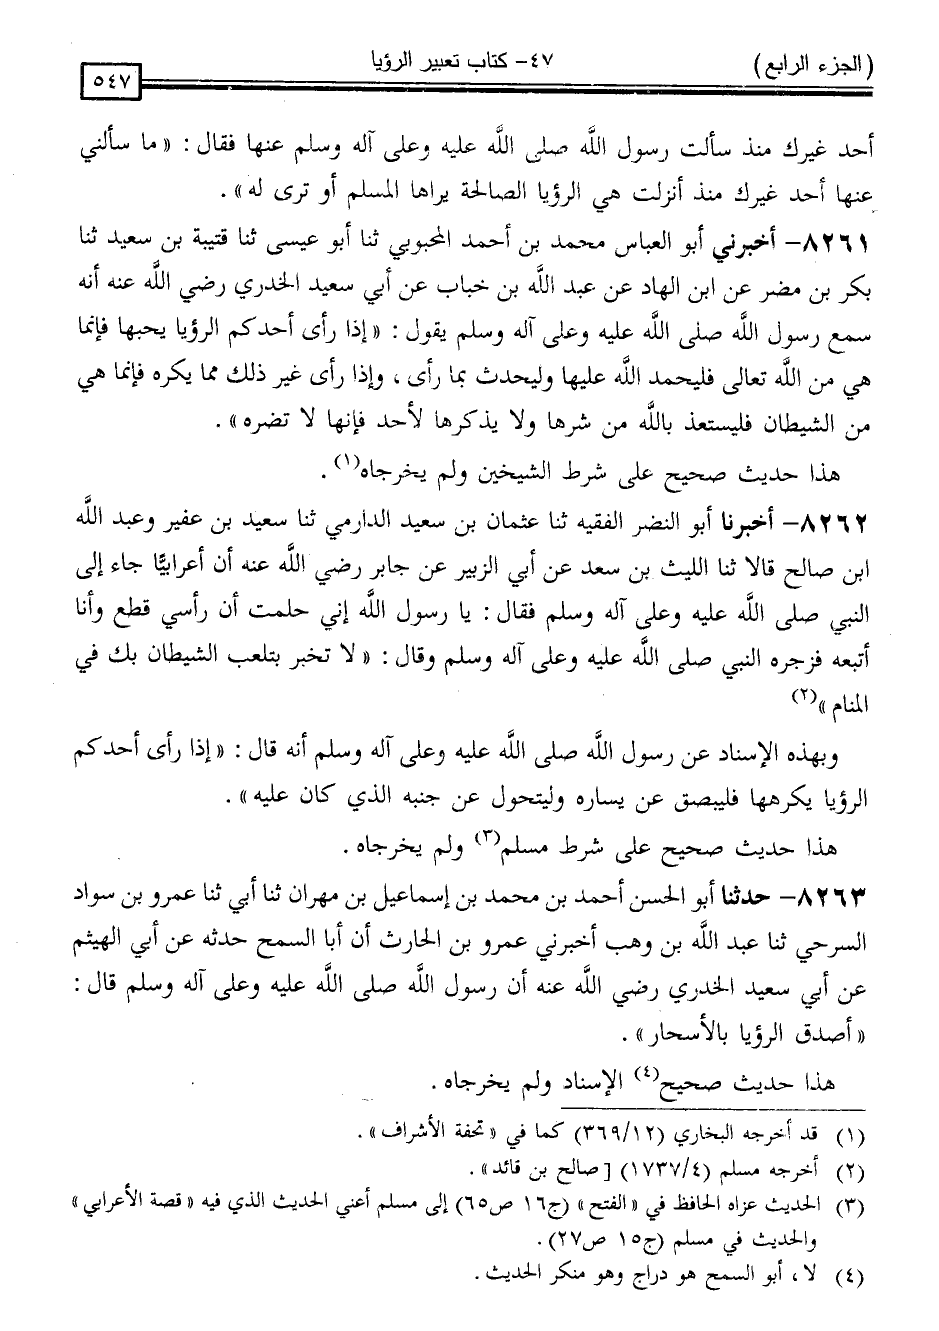 (الجزء الرابع)
٤٧- كتاب تعبير الرؤيا
٥٤٧
أحد غيرك منذ سألت رسول اللَّه صلى اللَّه عليه وعلى آله وسلم عنها فقال : « ما سألني
عنها أحد غيرك منذ أنزلت هي الرؤيا الصالحة يراها المسلم أو ترى له » .
٨٢٦١- أخبرني أبو العباس محمد بن أحمد المحبوبي ثنا أبو عيسى ثنا قتيبة بن سعيد ثنا
بكر بن مضر عن ابن الهاد عن عبد اللَّه بن خباب عن أبي سعيد الخدري رضي اللَّه عنه أنه
سمع رسول اللَّه صلى اللَّه عليه وعلى آله وسلم يقول : « إذا رأى أحدكم الرؤيا يحبها فإنما
هي من اللَّه تعالى فليحمد اللَّه عليها وليحدث بما رأى ، وإذا رأى غير ذلك مما يكره فإنما هي
من الشيطان فليستعذ باللَّه من شرها ولا يذكرها لأحد فإنها لا تضره » .
هذا حديث صحيح على شرط الشيخين ولم يخرجاه(١) .
٨٢٦٢- أخبرنا أبو النضر الفقيه ثنا عثمان بن سعيد الدارمي ثنا سعيد بن عفير وعبد اللَّه
ابن صالح قالا ثنا الليث بن سعد عن أبي الزبير عن جابر رضي اللَّه عنه أن أعرابيًّا جاء إلى
النبي صلى اللَّه عليه وعلى آله وسلم فقال : يا رسول اللَّه إني حلمت أن رأسي قطع وأنا
أتبعه فزجره النبي صلى اللَّه عليه وعلى آله وسلم وقال : « لا تخبر بتلعب الشيطان بك في
المنام »(٢)
وبهذه الإسناد عن رسول اللَّه صلى اللَّه عليه وعلى آله وسلم أنه قال : « إذا رأى أحدكم
الرؤيا يكرهها فليبصق عن يساره وليتحول عن جنبه الذي كان عليه » .
هذا حديث صحيح على شرط مسلم(٣) ولم يخرجاه .
٨٢٦٣- حدثنا أبو الحسن أحمد بن محمد بن إسماعيل بن مهران ثنا أبي ثنا عمرو بن سواد
السرحي ثنا عبد اللَّه بن وهب أخبرني عمرو بن الحارث أن أبا السمح حدثه عن أبي الهيثم
عن أبي سعيد الخدري رضي اللَّه عنه أن رسول اللَّه صلى اللَّه عليه وعلى آله وسلم قال :
« أصدق الرؤيا بالأسحار » .
هذا حديث صحيح(٤) الإسناد ولم يخرجاه .
(١) قد أخرجه البخاري (٣٦٩/١٢) كما في « تحفة الأشراف » .
(٢) أخرجه مسلم (١٧٣٧/٤) [صالح بن قائد » .
(٣) الحديث عزاه الحافظ في « الفتح » (ج١٦ ص٦٥) إلى مسلم أعني الحديث الذي فيه « قصة الأعرابي »
والحديث في مسلم (ج١٥ ص٢٧) .
(٤) لا ، أبو السمح هو دراج وهو منكر الحديث .